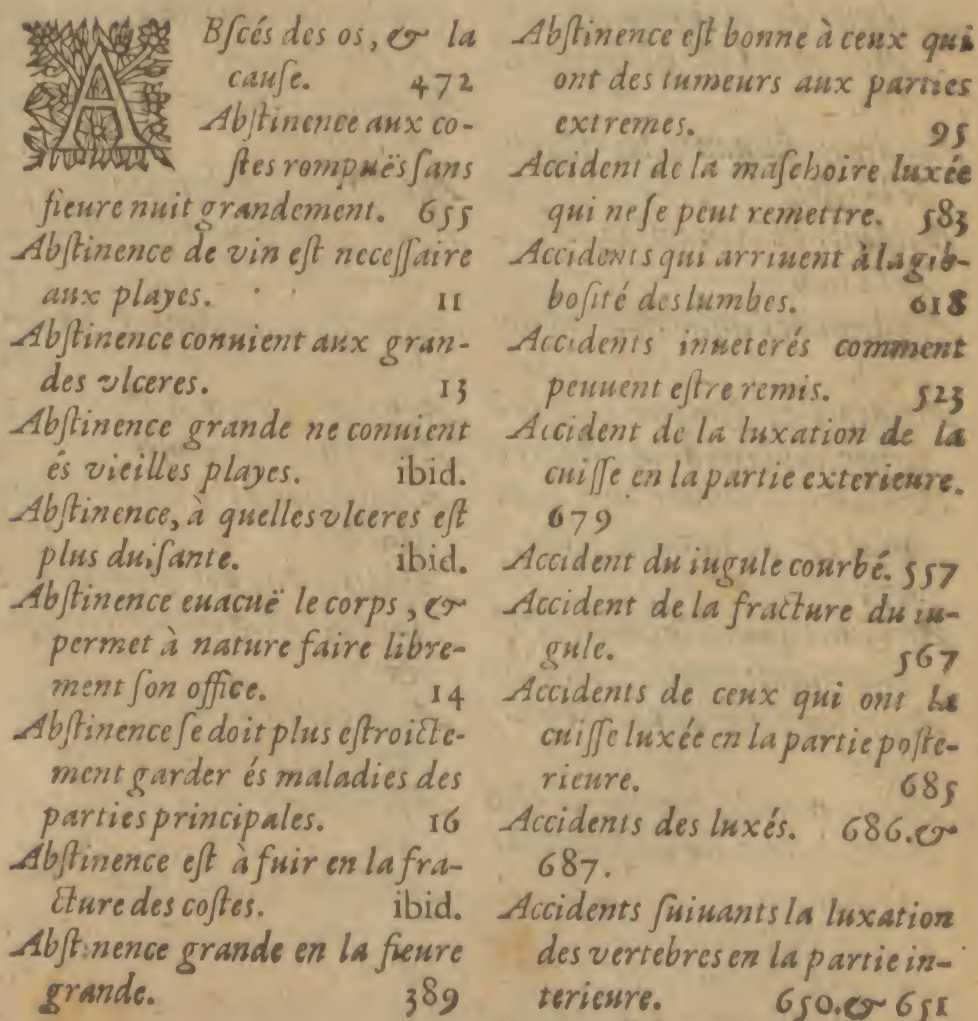 ABſcés des os, & la
cauſe. 472
Abſtinence aux co-
ſtes rompuës ſans
fieure nuit grandement. 655
Abſtinence de vin eſt neceſſaire
aux playes. 11
Abſtinence conuient aux gran-
des vlceres. 13
Abſtinence grande ne conuient
és vieilles playes. ibid.
Abſtinence, à quelles vlceres eſt
plus duiſante. ibid.
Abſtinence euacuë le corps, &
permet à nature faire libre-
ment ſon office. 14
Abſtinence ſe doit plus eſtroicte-
ment garder és maladies des
parties principales. 16
Abſtinence eſt à fuir en la fra-
cture des coſtes. ibid.
Abſtinence grande en la fieure
grande. 389
Abſtinence eſt bonne à ceux qui
ont des tumeurs aux parties
extremes. 95
Accident de la maſchoire luxée
qui ne ſe peut remettre. 583
Accidents qui arriuent à la gib-
boſité des lumbes. 618
Accidents inueterés comment
peuuent eſtre remis. 523
Accident de la luxation de la
cuiſſe en la partie exterieure.
679
Accident du iugule courbé. 557
Accident de la fracture du iu-
gule. 567
Accidents de ceux qui ont la
cuiſſe luxée en la partie poſte-
rieure. 685
Accidents des luxés. 686.&
687.
Accidents ſuiuants la luxation
des vertebres en la partie in-
terieure. 650.& 651